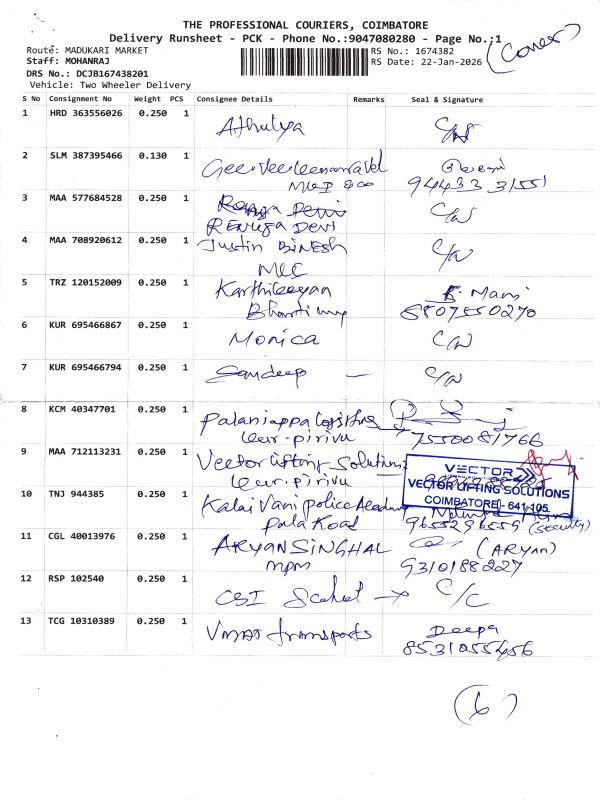 THE PROFESSIONAL COURIERS, COIMBATORE
Delivery Runsheet - PCK - Phone No.:9047080280 - Page No.:1
(Cover)
Route: MADUKARI MARKET
RS No.: 1674382
Staff: MOHANRAJ
RS Date: 22-Jan-2026
DRS No.: DCJB167438201
Vehicle: Two Wheeler Delivery
S No Consignment No Weight PCS Consignee Details Remarks Seal & Signature
1 HRD 363556026 0.250 1 Athulya C/W
2 SLM 387395466 0.130 1
94433 31551
3 MAA 577684528 0.250 1 Renuga Devi C/W
RENUGA DEVI
4 MAA 708920612 0.250 1 Justin BINESH C/W
5 TRZ 120152009 0.250 1 Karthikeyan Mani
8807550270
6 KUR 695466867 0.250 1 Monica C/W
7 KUR 695466794 0.250 1 Sandeep — C/W
8 KCM 40347701 0.250 1 Palaniappa Logistics
pirivu 7550081766
9 MAA 712113231 0.250 1 Vector Lifting Solutions
pirivu
VECTOR
VECTOR LIFTING SOLUTIONS
COIMBATORE - 641 105.
10 TNJ 944385 0.250 1 Kalai Vani police Academy
Pala Road 9655296559 (security)
11 CGL 40013976 0.250 1 ARYAN SINGHAL (ARYAN)
mpm 9310188227
12 RSP 102540 0.250 1 CSI School → C/C
13 TCG 10310389 0.250 1 transports Deepa
8531055456
(6)